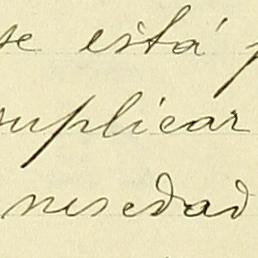 se está p
suplicar
nesedad